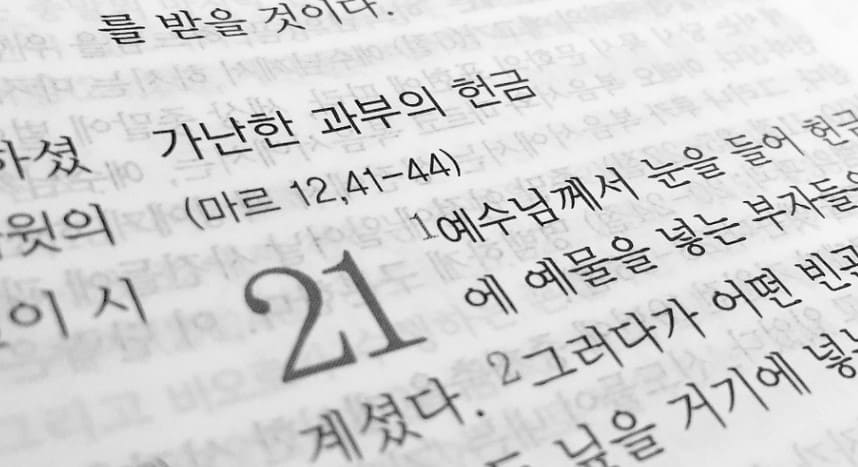 하셨
윗의
이 시
를 받을 것이다.
가난한 과부의 헌금
(마르 12,41-44)
21 1예수님께서 눈을 들어 헌금
에 예물을 넣는 부자들을
계셨다. 2그러다가 어떤 빈곤
닢을 거기에 넣는